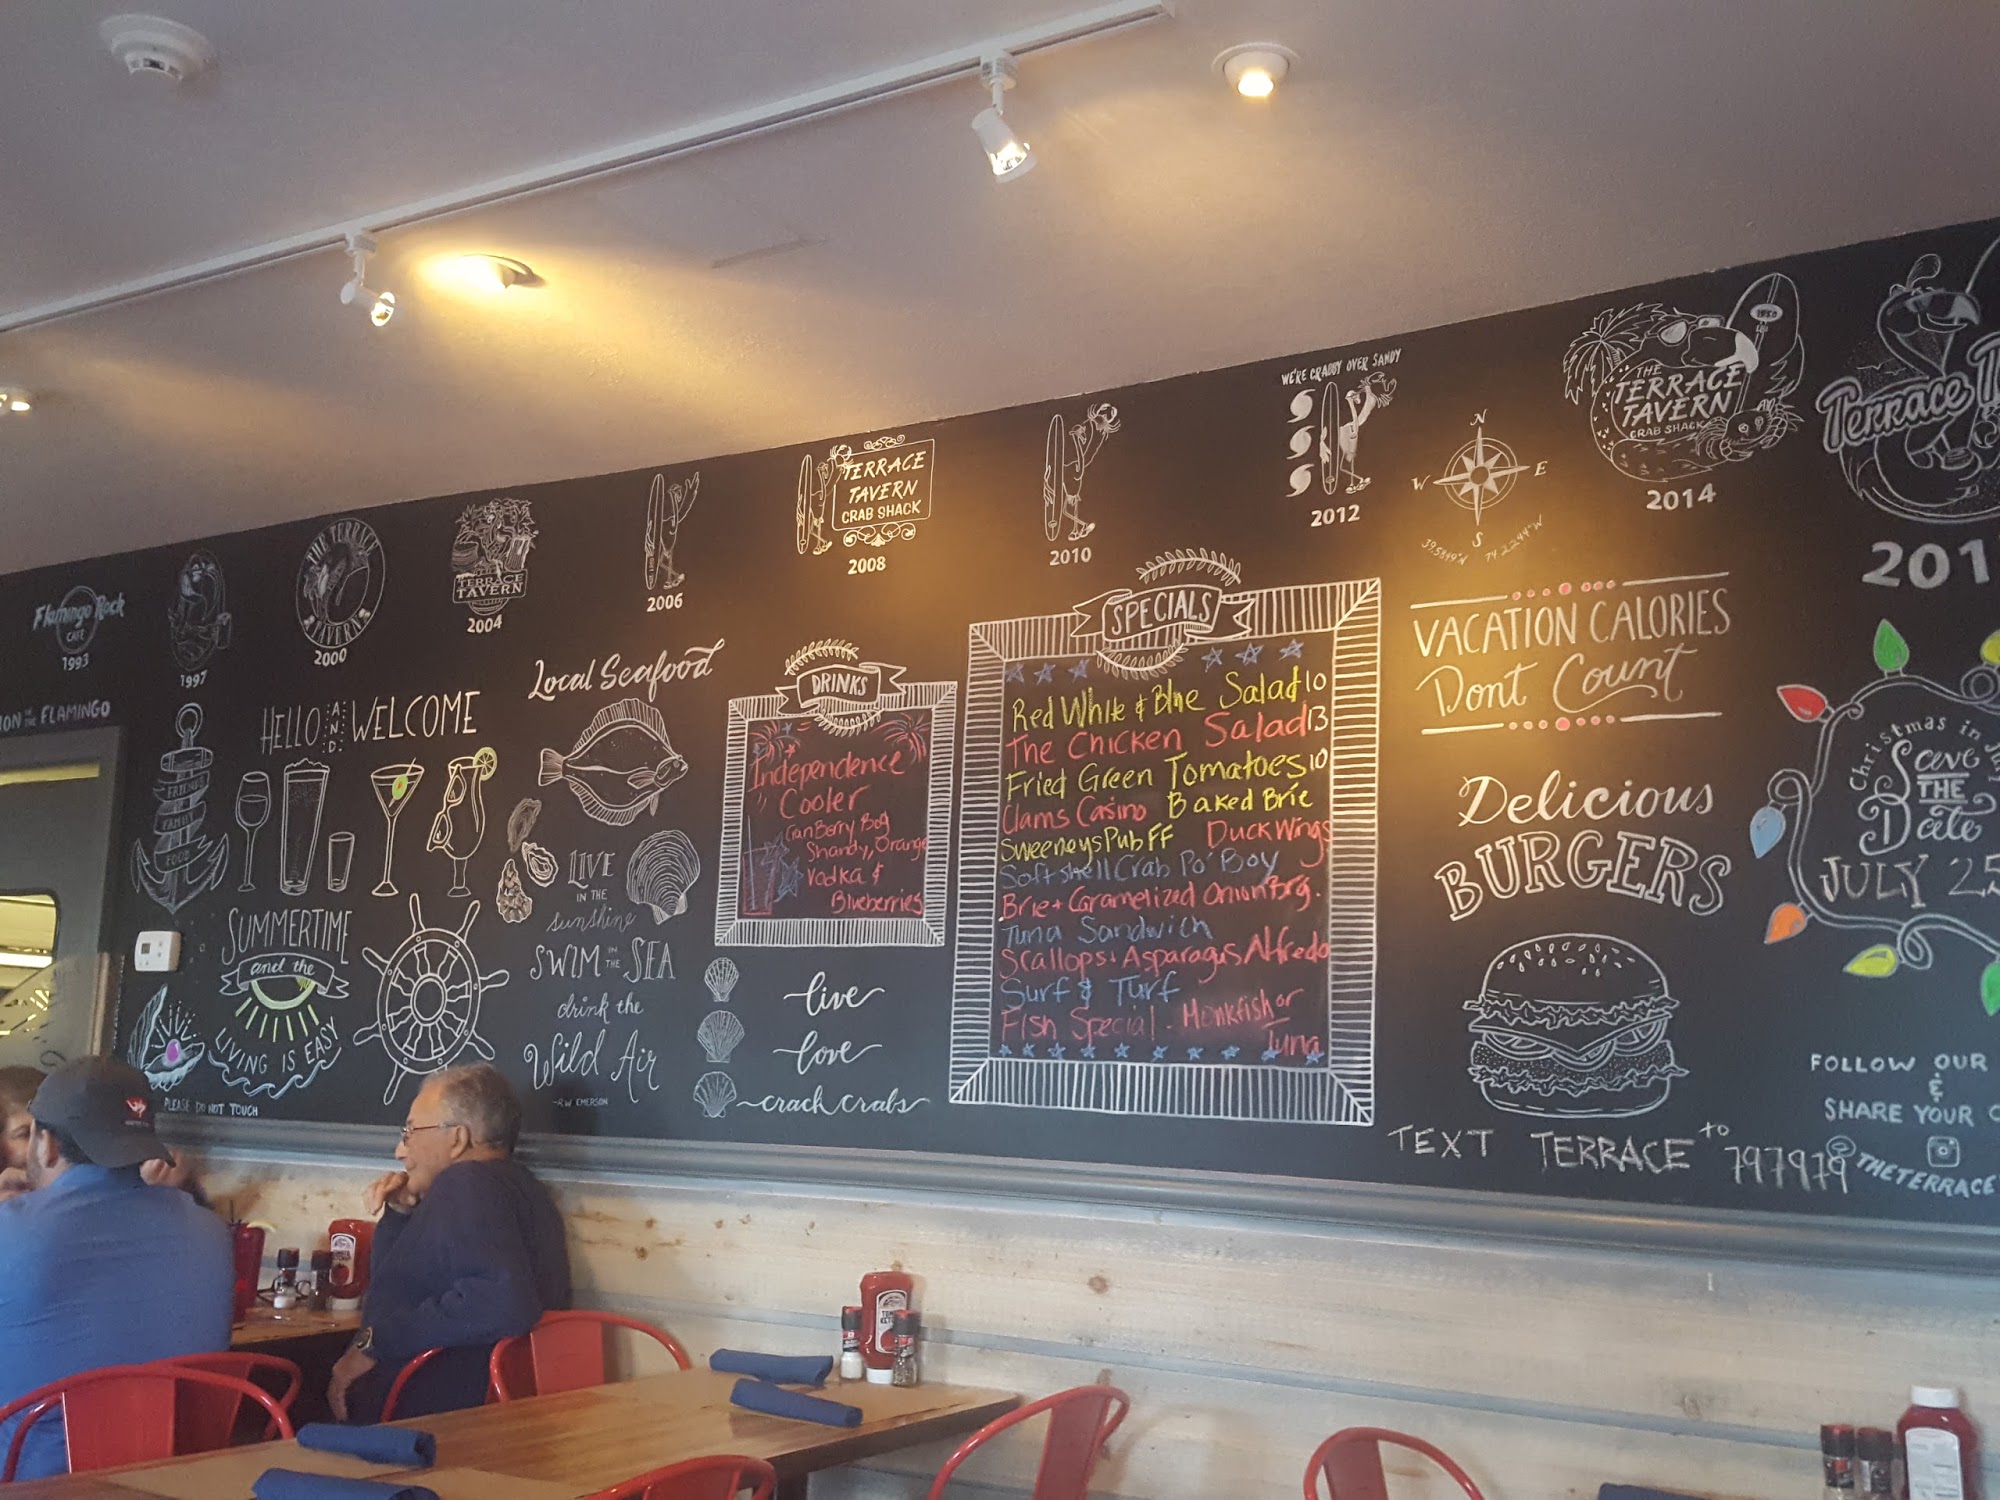 Flamingo Rock
CAFE
1993
1997
THE TERRACE
TAVERN
2000
TERRACE
TAVERN
2004
2006
TERRACE
TAVERN
CRAB SHACK
2008
2010
WE'RE CRABBY OVER SANDY
2012
N
W E
S
39.5849°N 74.2244°W
THE
TERRACE
TAVERN
CRAB SHACK
2014
Terrace
201
ION IN THE FLAMINGO
FRIENDS
FAMILY
FOOD
HELLO AND WELCOME
SUMMERTIME
and the
LIVING IS EASY
PLEASE DO NOT TOUCH
Local Seafood
LIVE
IN THE
sunshine
SWIM IN THE SEA
drink the
Wild Air
-RW EMERSON
DRINKS
Independence
Cooler
CranBerry Bog
Shandy, Orange
Vodka &
Blueberries
live
love
crack crabs
SPECIALS
Red White & Blue Salad 10
The Chicken Salad 13
Fried Green Tomatoes 10
Clams Casino Baked Brie
Sweeneys Pub FF Duck Wings
Softshell Crab Po' Boy
Brie + Caramelized Onion Brg.
Tuna Sandwich
Scallops + Asparagus Alfredo
Surf & Turf
Fish Special - Monkfish or
Tuna
VACATION CALORIES
Dont Count
Delicious
BURGERS
TEXT TERRACE to 797979
Christmas in July
Save
THE
Date
JULY 25
FOLLOW OUR
&
SHARE YOUR
THETERRACE